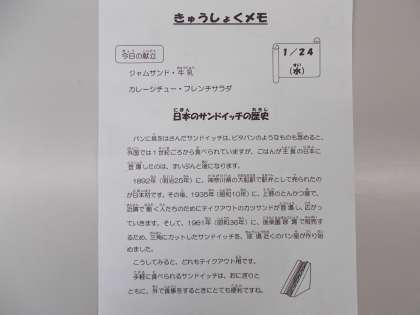 きゅうしょくメモ
今日の献立
1/24
(水)
ジャムサンド・牛乳
カレーシチュー・フレンチサラダ
日本のサンドイッチの歴史
パンに具をはさんだサンドイッチは、ピタパンのようなものも含めると、
外国では1世紀ごろから食べられていますが、ごはんが主食の日本に
登場したのは、ずいぶんと後になります。
1892年(明治25年)に、神奈川県の大船駅で駅弁として売られたの
が日本初です。その後、1935年(昭和10年)に、上野のとんかつ屋で、
近隣で働く人たちのためにテイクアウトのカツサンドが登場し、広がっ
ていきます。そして、1961年(昭和36年)に、後楽園球場で販売す
るため、三角にカットしたサンドイッチを、球場近くのパン屋が作り始
めました。
こうしてみると、どれもテイクアウト用です。
手軽に食べられるサンドイッチは、おにぎりと
ともに、外で食事をするときにとても便利ですね。